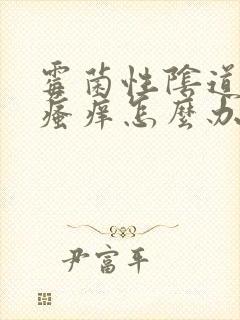 霉菌性陰道
瘙痒怎麽办
尹富平